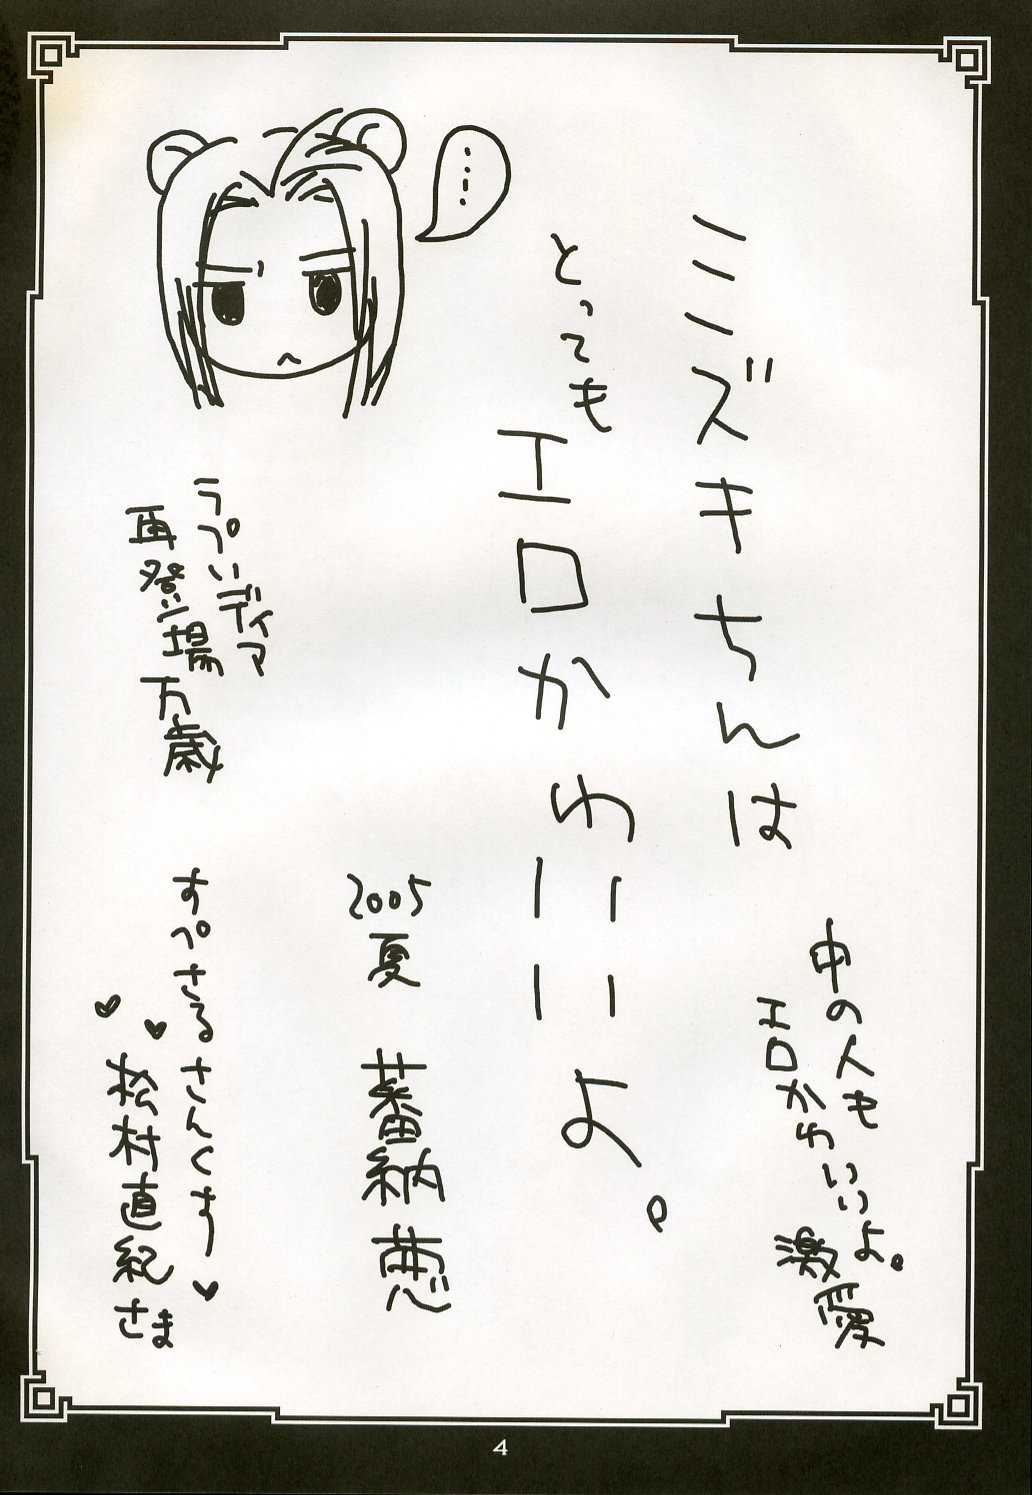 ミズキちんは
とっても
エロかわいいよ。
中の人も
エロかわいいよ。
激愛
2005 夏 蕃納葱
…
ラプいディア
再登場万歳
すぺさるさんくす♥
松村直紀さま
4